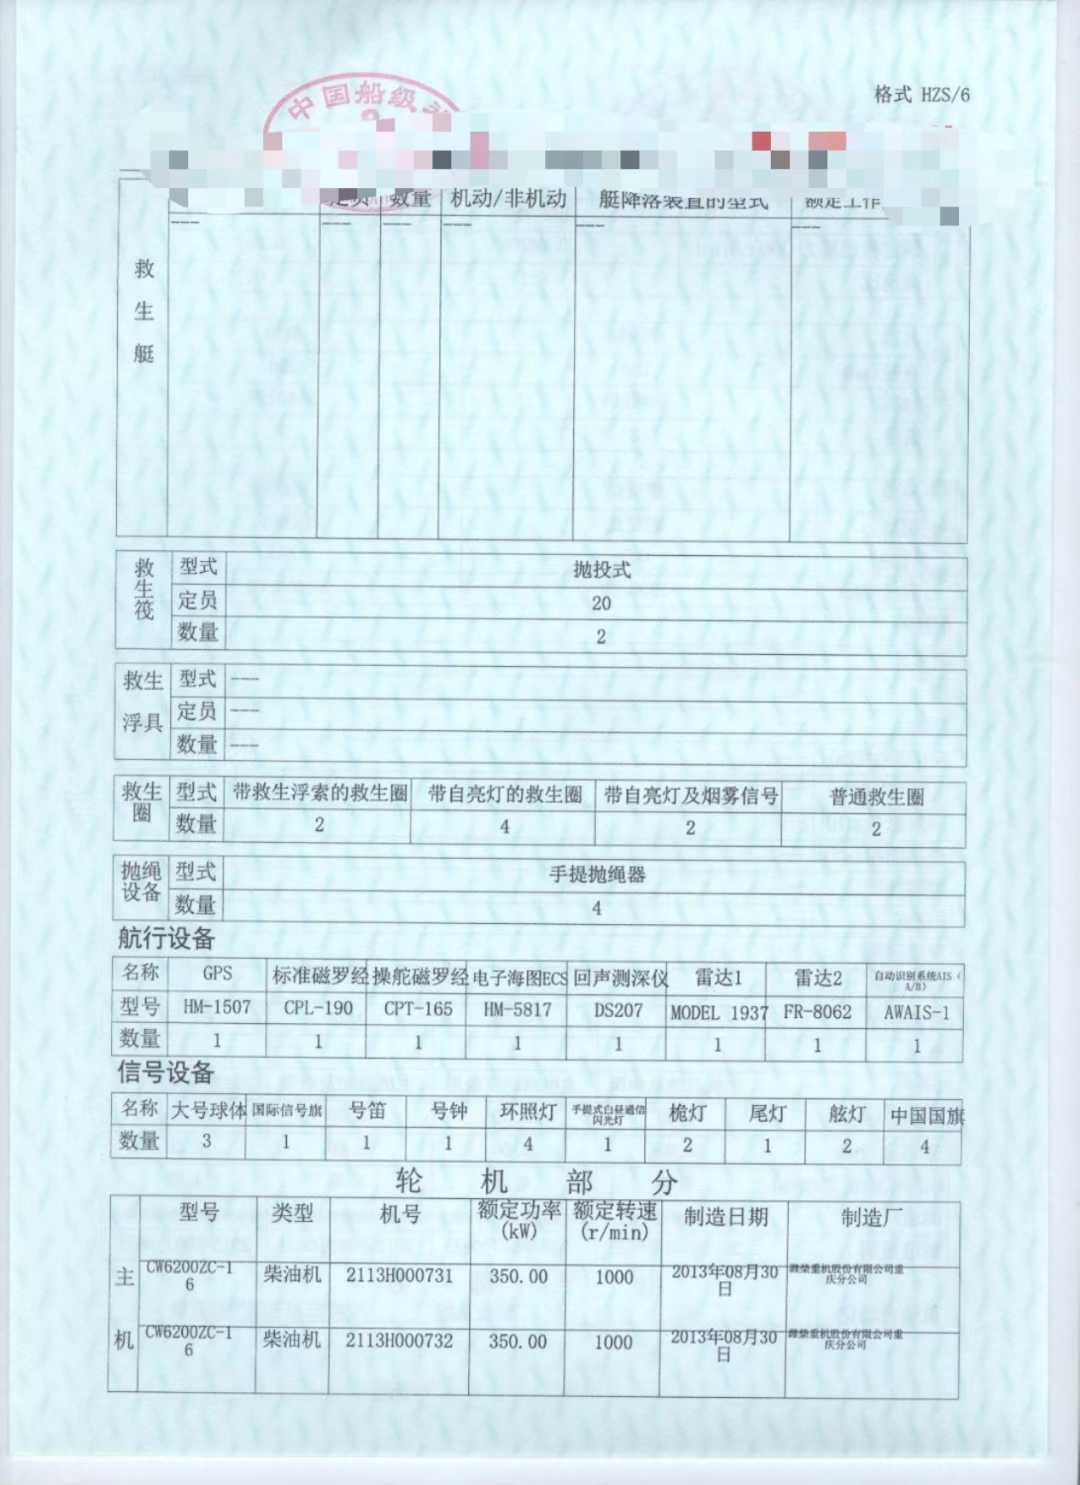 格式 HZS/6
中国船级
数量 机动/非机动 艇降落装置的型式 额定工作
救生艇 --- --- --- --- --- ---
救生筏 型式 抛投式
定员 20
数量 2
救生浮具 型式 ---
定员 ---
数量 ---
救生圈 型式 带救生浮索的救生圈 带自亮灯的救生圈 带自亮灯及烟雾信号 普通救生圈
数量 2 4 2 2
抛绳设备 型式 手提抛绳器
数量 4
航行设备
名称 GPS 标准磁罗经 操舵磁罗经 电子海图ECS 回声测深仪 雷达1 雷达2 自动识别系统AIS（A/B）
型号 HM-1507 CPL-190 CPT-165 HM-5817 DS207 MODEL 1937 FR-8062 AWAIS-1
数量 1 1 1 1 1 1 1 1
信号设备
名称 大号球体 国际信号旗 号笛 号钟 环照灯 手提式白昼通信闪光灯 桅灯 尾灯 舷灯 中国国旗
数量 3 1 1 1 4 1 2 1 2 4
轮机部分
型号 类型 机号 额定功率(kW) 额定转速(r/min) 制造日期 制造厂
主机 CW6200ZC-16 柴油机 2113H000731 350.00 1000 2013年08月30日 潍柴重机股份有限公司重庆分公司
CW6200ZC-16 柴油机 2113H000732 350.00 1000 2013年08月30日 潍柴重机股份有限公司重庆分公司